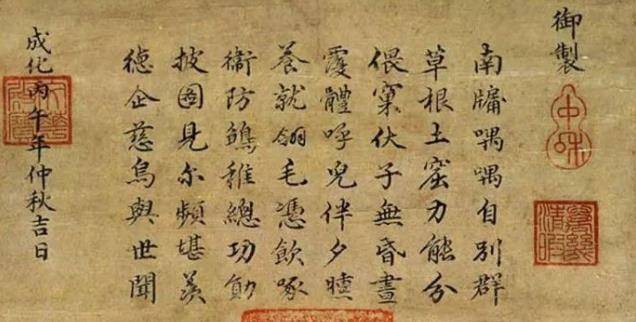 御製
南牖喁喁自別群
草根土窟力能分
偎窠伏子無昏晝
覆體呼兒伴夕曛
養就翎毛憑飲啄
衛防鶵稚總功勛
披圖見尔頻堪羨
徳企慈烏與世聞
成化丙午年仲秋吉日